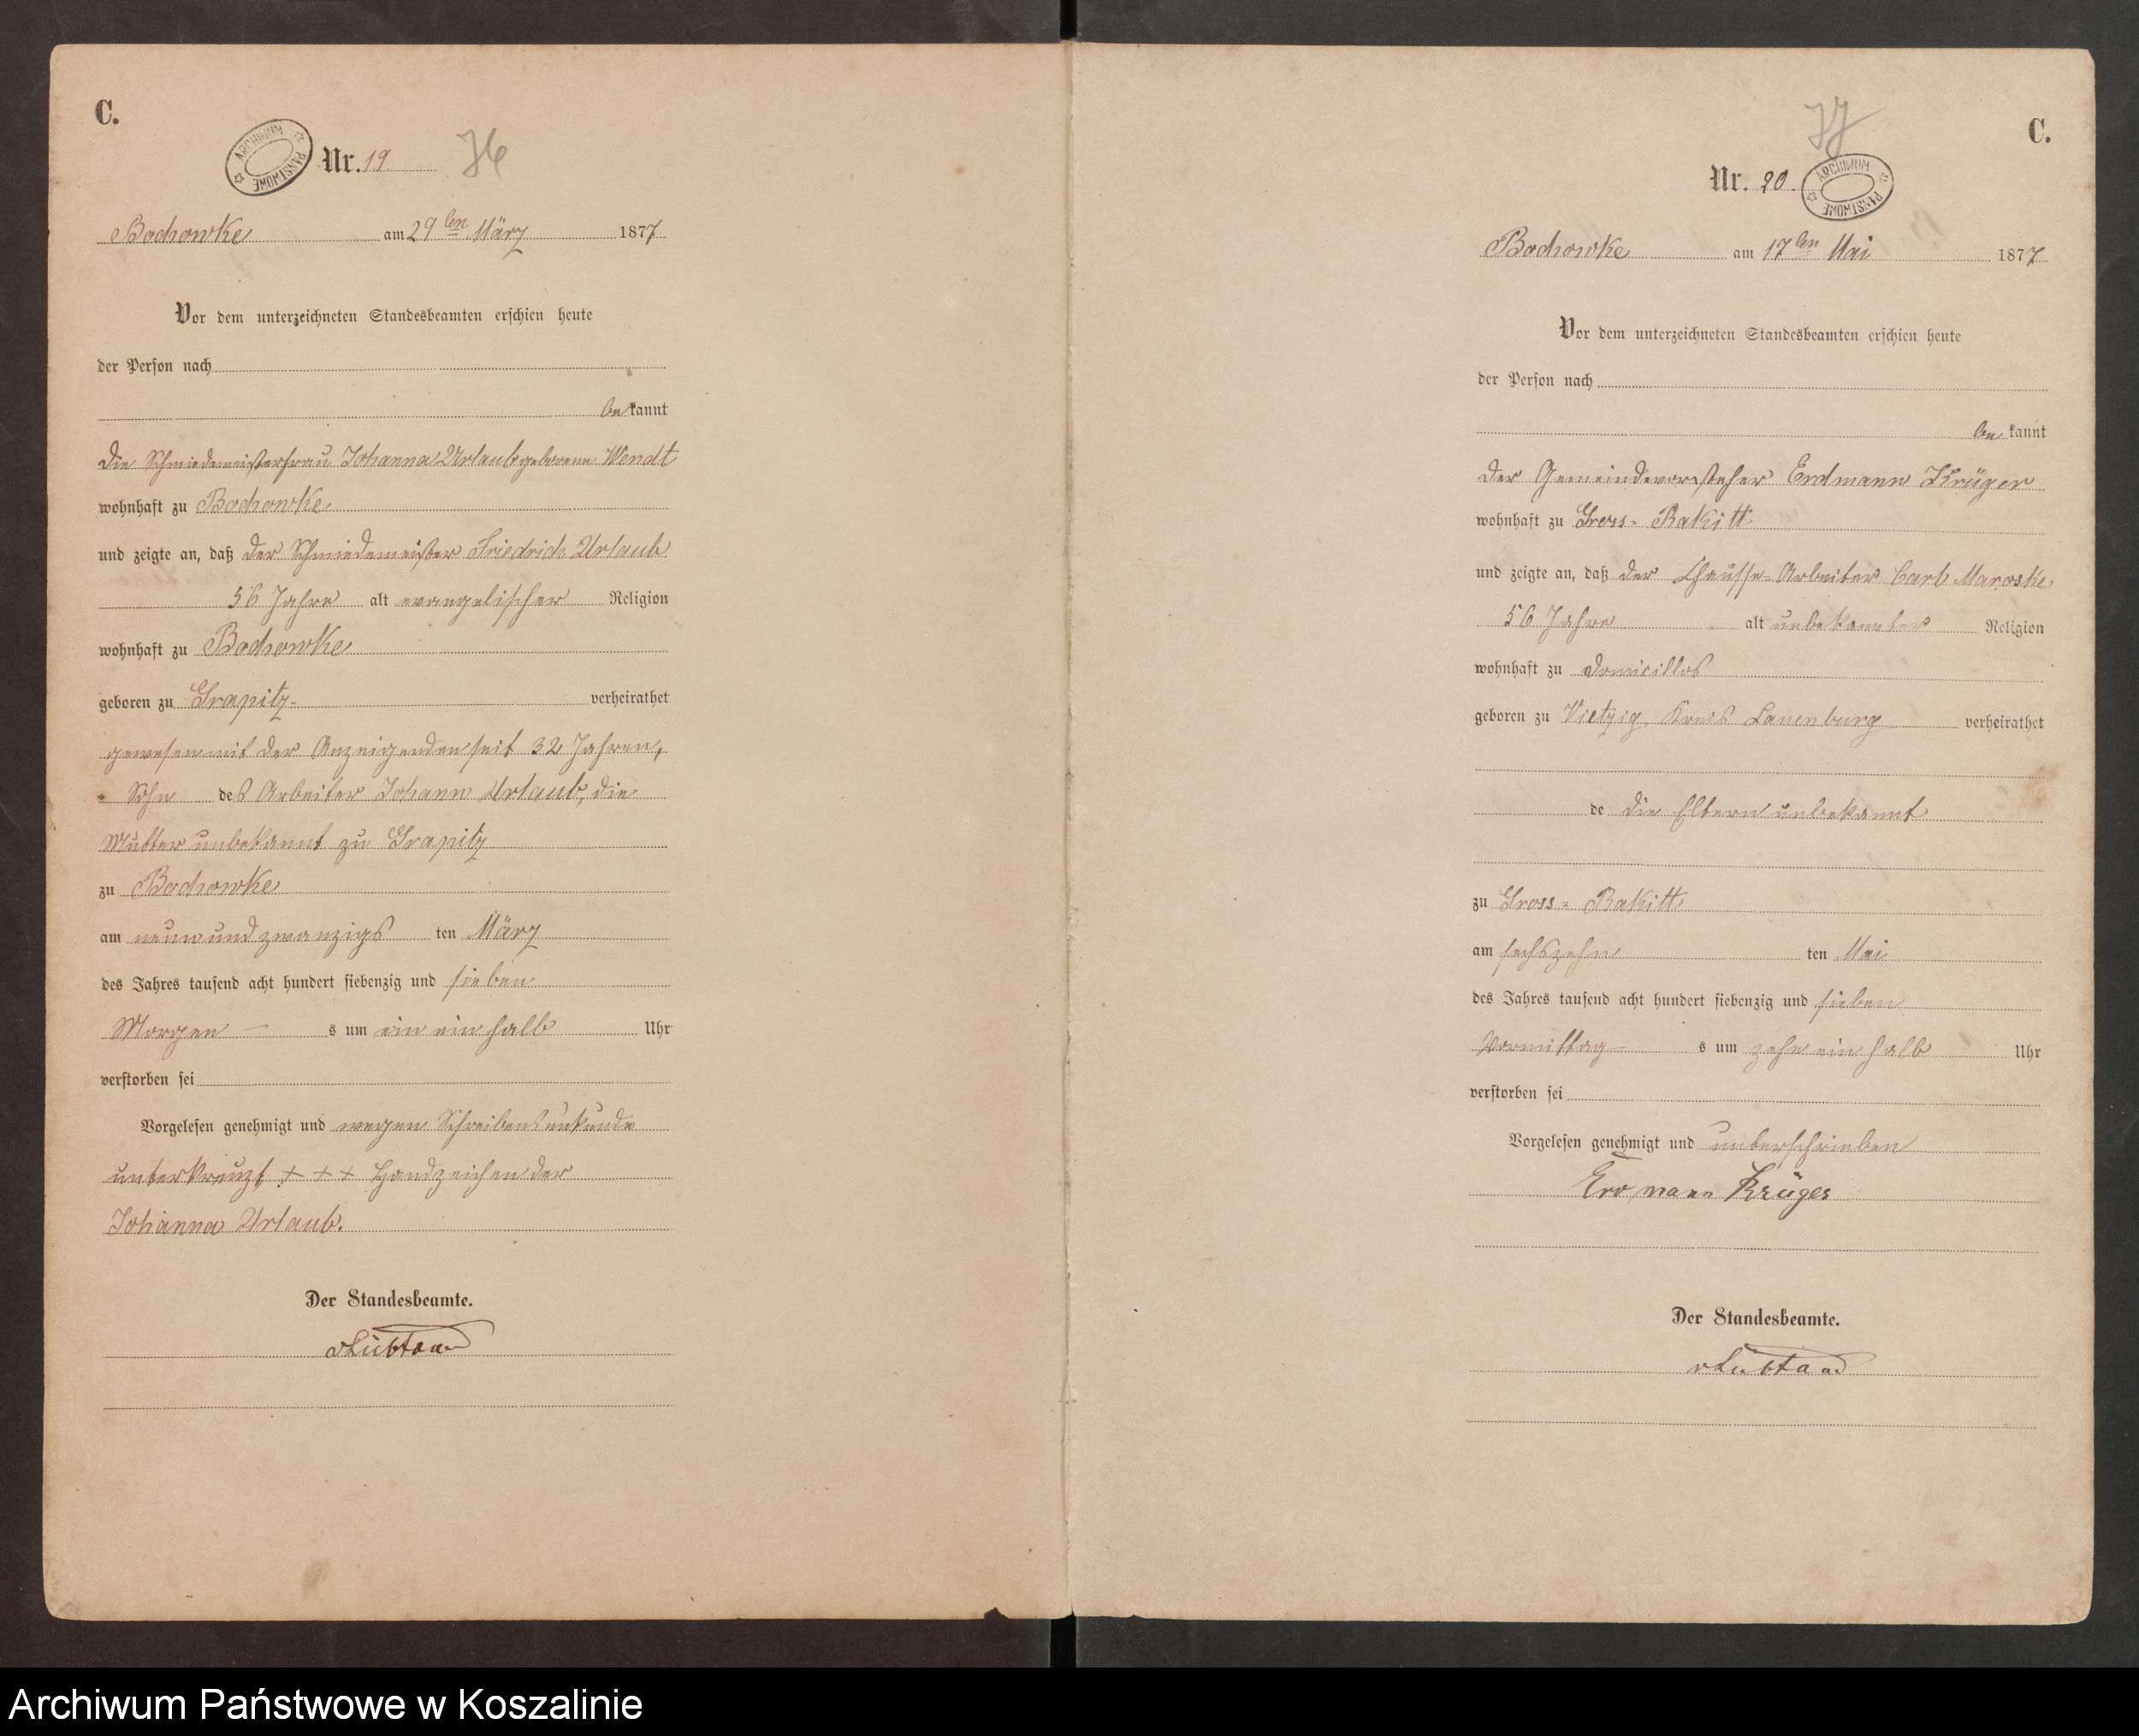 C.
ARCHIWUM PAŃSTWOWE
Nr. 19.
Bochowke am 29ten März 1877
Vor dem unterzeichneten Standesbeamten erschien heute
der Person nach
be kannt
die Schmiedemeisterfrau Johanna Urlaub geborene Wendt
wohnhaft zu Bochowke
und zeigte an, daß der Schmiedemeister Friedrich Urlaub
56 Jahre alt evangelischer Religion
wohnhaft zu Bochowke
geboren zu Grapitz verheirathet
gewesen mit der Anzeigenden seit 32 Jahren,
Sohn des Arbeiter Johann Urlaub, die
Mutter unbekannt zu Grapitz
zu Bochowke
am neun und zwanzigs ten März
des Jahres tausend acht hundert siebenzig und sieben
Morgen s um ein ein halb Uhr
verstorben sei
Vorgelesen genehmigt und wegen Schreibensunkunde
unterkreuzt. + + + Handzeichen der
Johanna Urlaub.
Der Standesbeamte.
C.
ARCHIWUM PAŃSTWOWE
Nr. 20.
Bochowke am 17ten Mai 1877
Vor dem unterzeichneten Standesbeamten erschien heute
der Person nach
be kannt
der Gemeindevorsteher Erdmann Krüger
wohnhaft zu Gross-Rakitt
und zeigte an, daß der Chaussee-Arbeiter Carl Maroske
56 Jahre alt unbekannter Religion
wohnhaft zu domicillos
geboren zu Vietzig, Kreis Lauenburg verheirathet
de die Eltern unbekannt
zu Gross-Rakitt
am sechszehn ten Mai
des Jahres tausend acht hundert siebenzig und sieben
Vormittag s um zehn ein halb Uhr
verstorben sei
Vorgelesen genehmigt und unterschrieben
Erdmann Krüger
Der Standesbeamte.
Archiwum Państwowe w Koszalinie